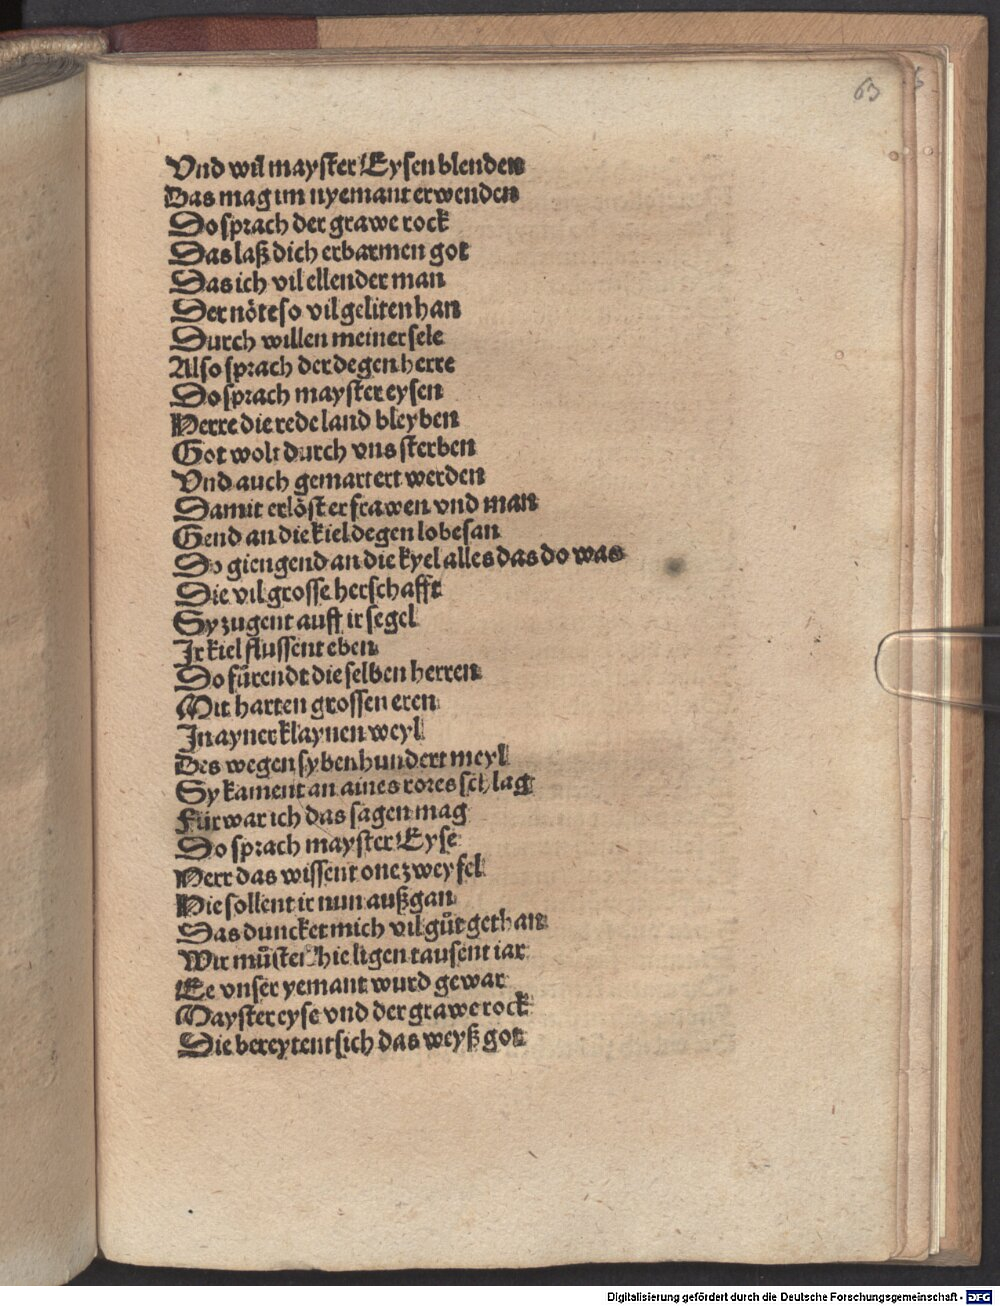 63
Vnd wil mayster Eysen blenden
Das mag im nyemant erwenden
Do sprach der grawe rock
Das laß dich erbarmen got
Das ich vil ellender man
Der nöte so vil geliten han
Durch willen meiner sele
Also sprach der degen herre
Do sprach mayster eysen
Herre die rede land bleyben
Got wolt durch vns sterben
Vnd auch gemartert werden
Damit erlöst er frawen vnd man
Gend an die kiel degen lobesan
Do giengend an die kyel alles das do was
Die vil grosse herschafft
Sy zugent auff ir segel
Ir kiel flussent eben
Do fürendt die selben herren
Mit harten grossen eren
In ayner klaynen weyl
Des wegen syben hundert meyl
Sy kament an aines rores schlag
Für war ich das sagen mag
Do sprach mayster Eyse
Herr das wissent one zweyfel
Hie sollent ir nun außgan
Das duncket mich vil gůt gethan
Wir můsten hie ligen tausent iar
Ee vnser yemant wurd gewar
Mayster eyse vnd der grawe rock
Die bereytent sich das weyß got
Digitalisierung gefördert durch die Deutsche Forschungsgemeinschaft - DFG